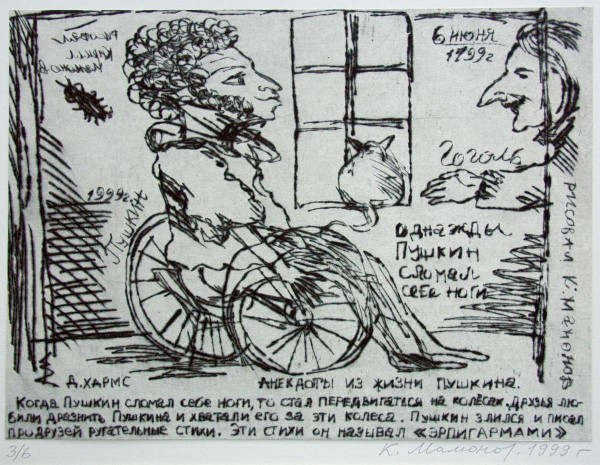 рисовал
Кирилл
Мамонов
6 июня
1999г
Гоголь
1999г.
Пушкин
однажды
Пушкин
сломал
себе ноги
рисовал К. Мамонов
Д. ХАРМС АНЕКДОТЫ ИЗ ЖИЗНИ ПУШКИНА.
КОГДА ПУШКИН СЛОМАЛ СЕБЕ НОГИ, ТО СТАЛ ПЕРЕДВИГАТЬСЯ НА КОЛЁСАХ. ДРУЗЬЯ ЛЮ-
БИЛИ ДРАЗНИТЬ ПУШКИНА И ХВАТАЛИ ЕГО ЗА ЭТИ КОЛЕСА. ПУШКИН ЗЛИЛСЯ И ПИСАЛ
ПРО ДРУЗЕЙ РУГАТЕЛЬНЫЕ СТИХИ. ЭТИ СТИХИ ОН НАЗЫВАЛ «ЭРПИГАРМАМИ»
3/6 К. Мамонов. 1999 г